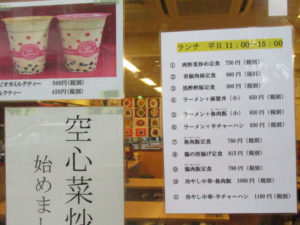 ピオカミルクティー 500円(税別)
ルクティー 450円(税別)
空心菜炒
始めまし
ランチ 平日 11:00~15:00
① 肉野菜炒め定食 750円(税別)
② 青椒肉絲定食 880円(税別)
③ 黒酢酢豚定食 900円(税別)
④ ラーメン+麻婆丼(小) 850円(税別)
⑤ ラーメン+魯肉飯(小) 850円(税別)
⑥ ラーメン+半チャーハン 850円(税別)
⑦ 魯肉飯定食 780円(税別)
⑧ 鶏の唐揚げ定食 815円(税別)
⑨ 鶏肉飯定食 780円(税別)
⑩ 冷やし中華+魯肉飯 1080円(税別)
⑪ 冷やし中華+半チャーハン 1180円(税別)